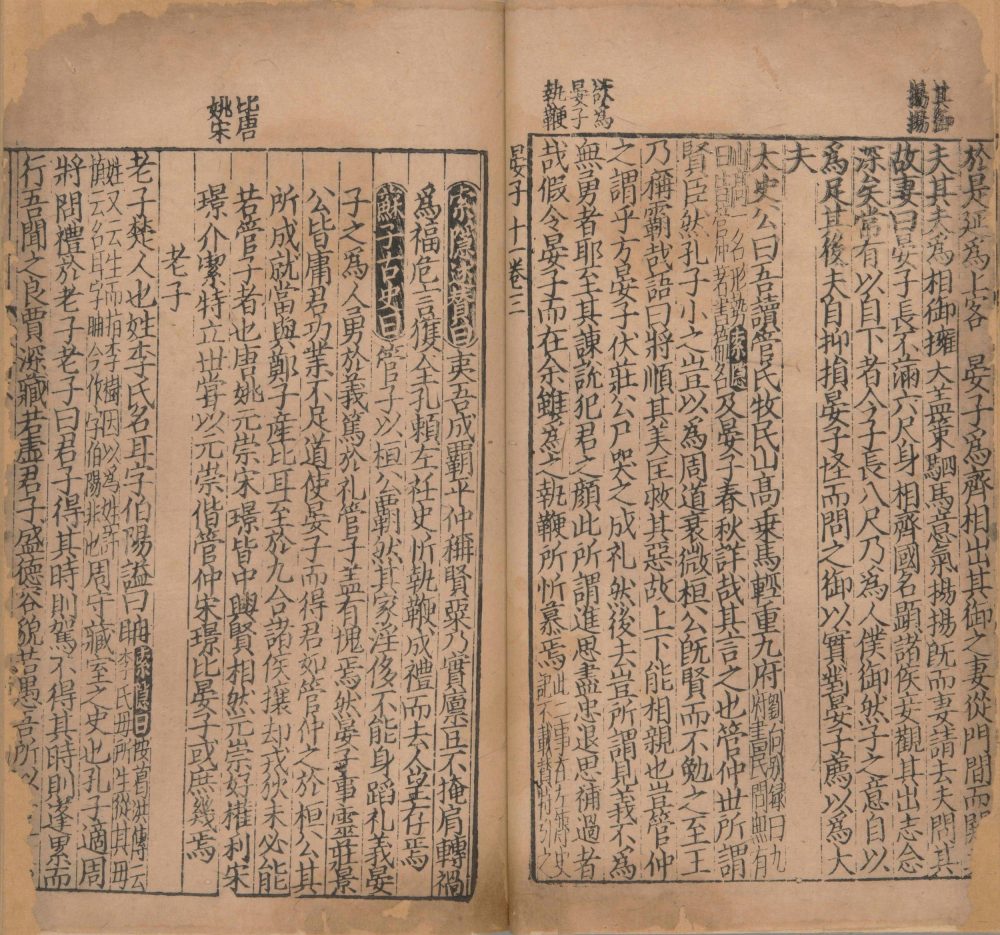 其御
揚揚
於是延爲上客 晏子爲齊相出其御之妻從門間而闚
夫其夫爲相御擁大盖策駟馬意氣揚揚既而妻請去夫問其
故妻曰晏子長不滿六尺身相齊國名顯諸侯妾觀其出志念
深矣常有以自下者今子長八尺乃爲人僕御然子之意自以
爲足其後夫自抑損晏子怪而問之御以實對晏子薦以爲大
夫
太史公曰吾讀管氏牧民山髙乗馬輕重九府劉向別録曰九府書民間無有
山髙一名形勢索隱曰皆管仲著書篇名及晏子春秋詳哉其言之也管仲世所謂
賢臣然孔子小之豈以爲周道衰微桓公既賢而不勉之至王
乃稱霸哉語曰將順其美匡救其惡故上下能相親也豈管仲
之謂乎方晏子伏莊公尸哭之成礼然後去豈所謂見義不爲
無勇者耶至其諫説犯君之顔此所謂進思盡忠退思補過者
哉假令晏子而在余雖爲之執鞭所忻慕焉
欲爲
晏子
執鞭
晏子 十卷三
索隱述賛曰夷吾成覇平仲稱賢粟乃實廪豆不掩肩轉禍
爲福危言獲全孔頼左衽史忻執鞭成禮而去人望存焉
蘇子古史曰管子以桓公霸然其家淫侈不能身蹈礼義晏
子之爲人勇於義篤於礼管子盖有愧焉然晏子事靈莊景
公皆庸君功業不足道使晏子而得君如管仲之於桓公其
所成就當與鄭子産比耳至於九合諸侯攘却戎狄未必能
若管子者也唐姚元崇宋璟皆中興賢相然元崇好權利宋
璟介潔特立世甞以元崇偕管仲宋璟比晏子或庶幾焉
比唐
姚宋
老子
老子楚人也姓李氏名耳字伯陽謚曰耼索隱曰按葛洪傳云李氏母所生從其母
姓又云生而指李樹因以爲姓許慎云名耳字耼今作字伯陽非也周守藏室之史也孔子適周
將問禮於老子老子曰君子得其時則駕不得其時則蓬累而
行吾聞之良賈深藏若虚君子盛德容貌若愚言所以